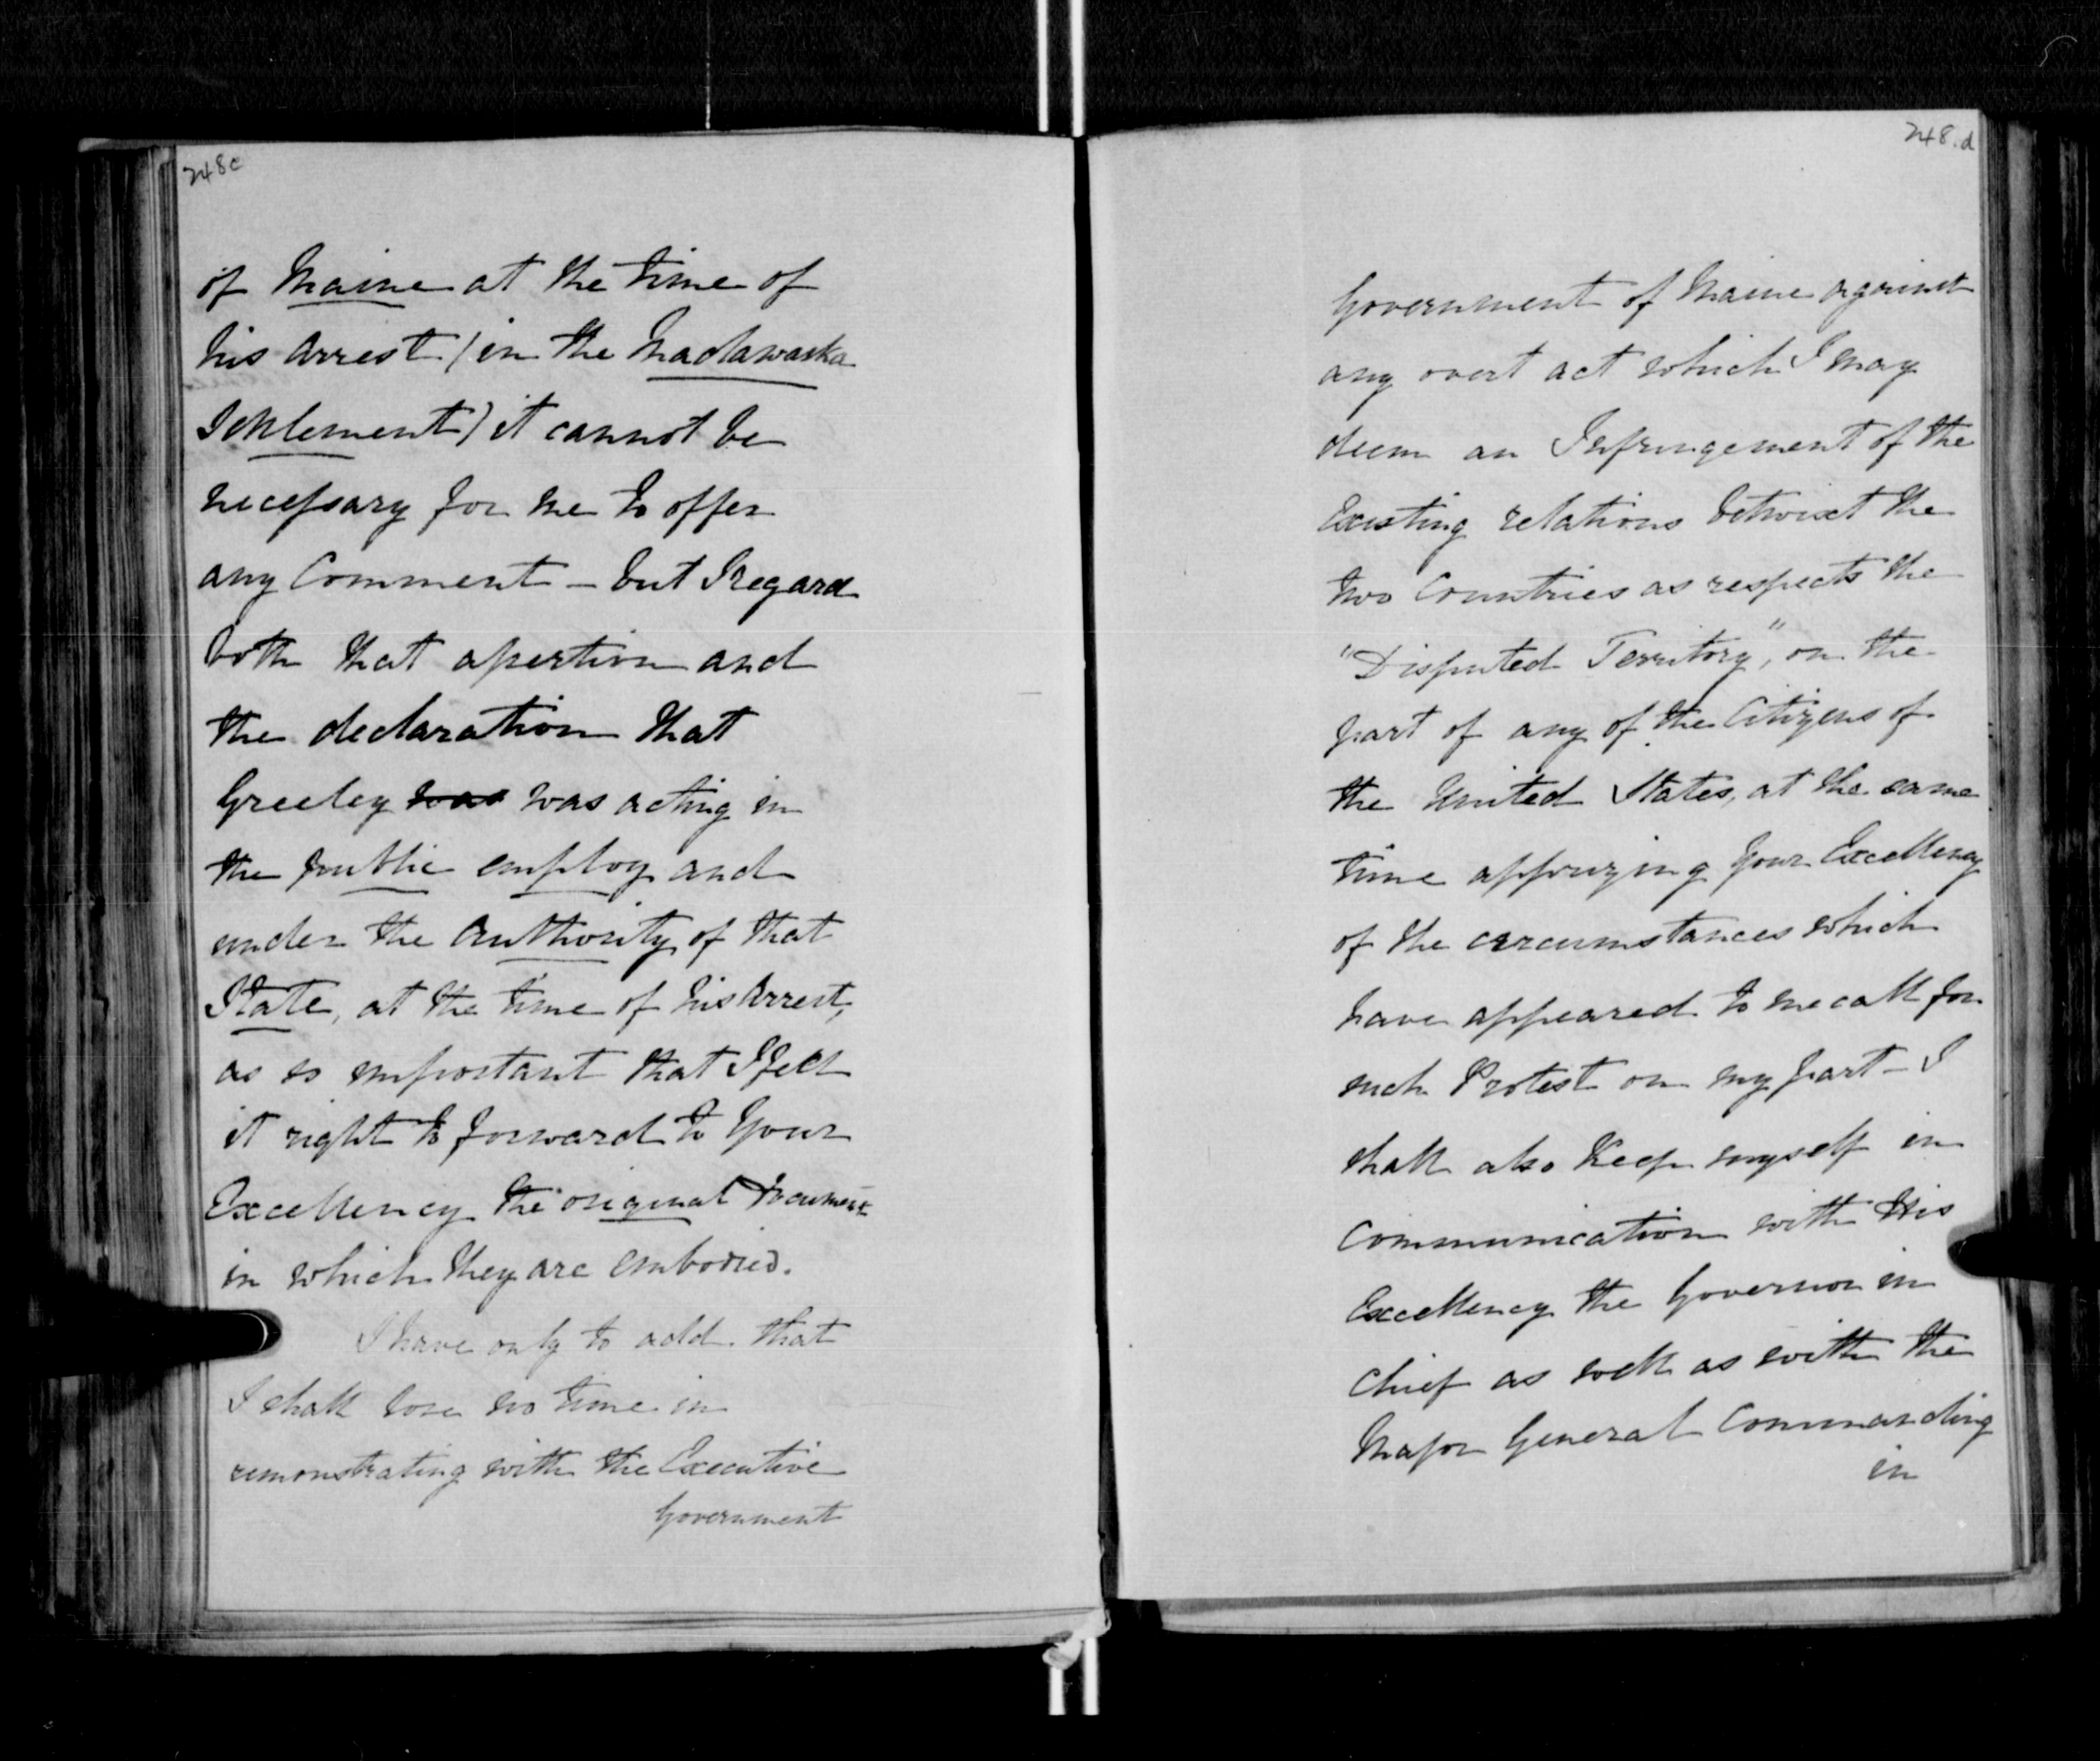 248c
of Maine at the time of
his arrest (in the Madawaska
Settlement) it cannot be
necessary for me to offer
any Comment – but I regard
both that assertion and
the declaration that
Greeley was was acting in
the public employ and
under the authority of that
State, at the time of his Arrest,
as so important that I feel
it right to forward to Your
Excellency the original Document
in which they are embodied.
I have only to add that
I shall lose no time in
remonstrating with the Executive
Government
248.d
Government of Maine against
any overt act which I may
deem an Infringement of the
Existing relations betwixt the
two Countries as respects the
"Disputed Territory", on the
part of any of the Citizens of
the United States, at the same
time apprizing Your Excellency
of the circumstances which
have appeared to me call for
such Protest on my part – I
shall also Keep myself in
Communication with His
Excellency the Governor in
Chief as well as with the
Major General Commanding
in